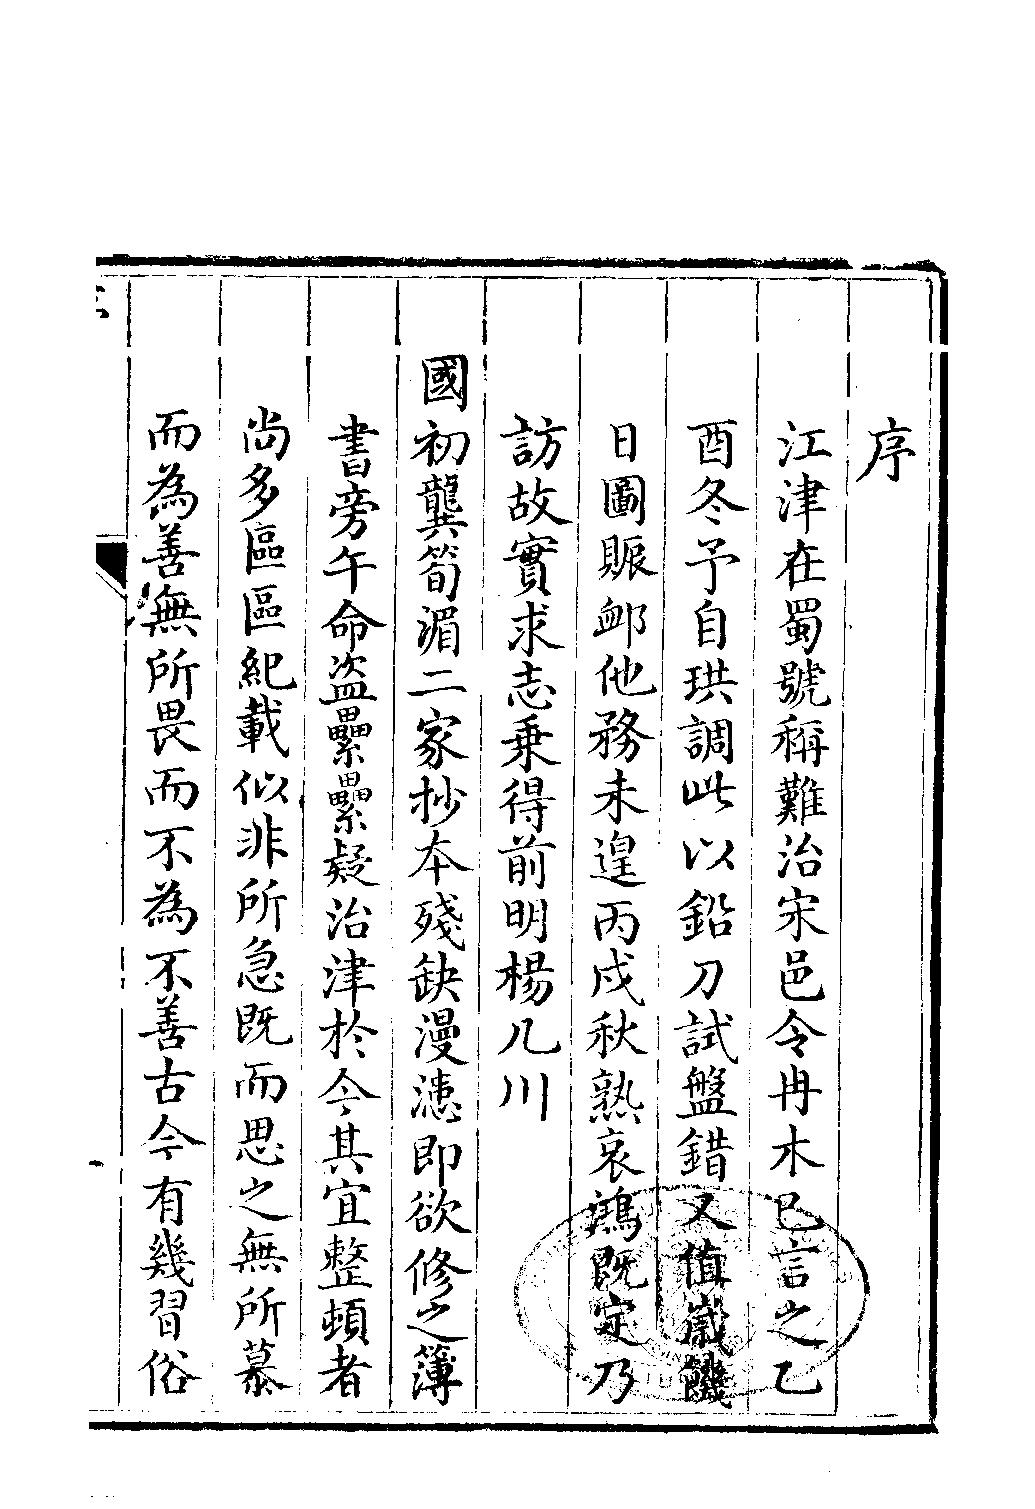 序
江津在蜀號稱難治宋邑令冉木已言之乙
酉冬予自珙調此以鉛刀試盤錯又值歲饑
日圖賑卹他務未遑丙戌秋熟哀鴻既定乃
訪故實求志乗得前明楊几川
國初龔筍湄二家抄本殘缺漫漶即欲修之簿
書旁午命盜纍纍疑治津於今其宜整頓者
尚多區區紀載似非所急既而思之無所慕
而為善無所畏而不為不善古今有幾習俗